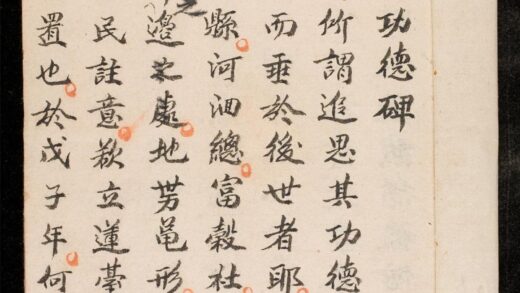 功德碑
所謂追思其功德
而垂於後世者耶
縣河洄總富穀社
邊之處地势黾形
民註意歛立蓮臺
置也於戊子年何